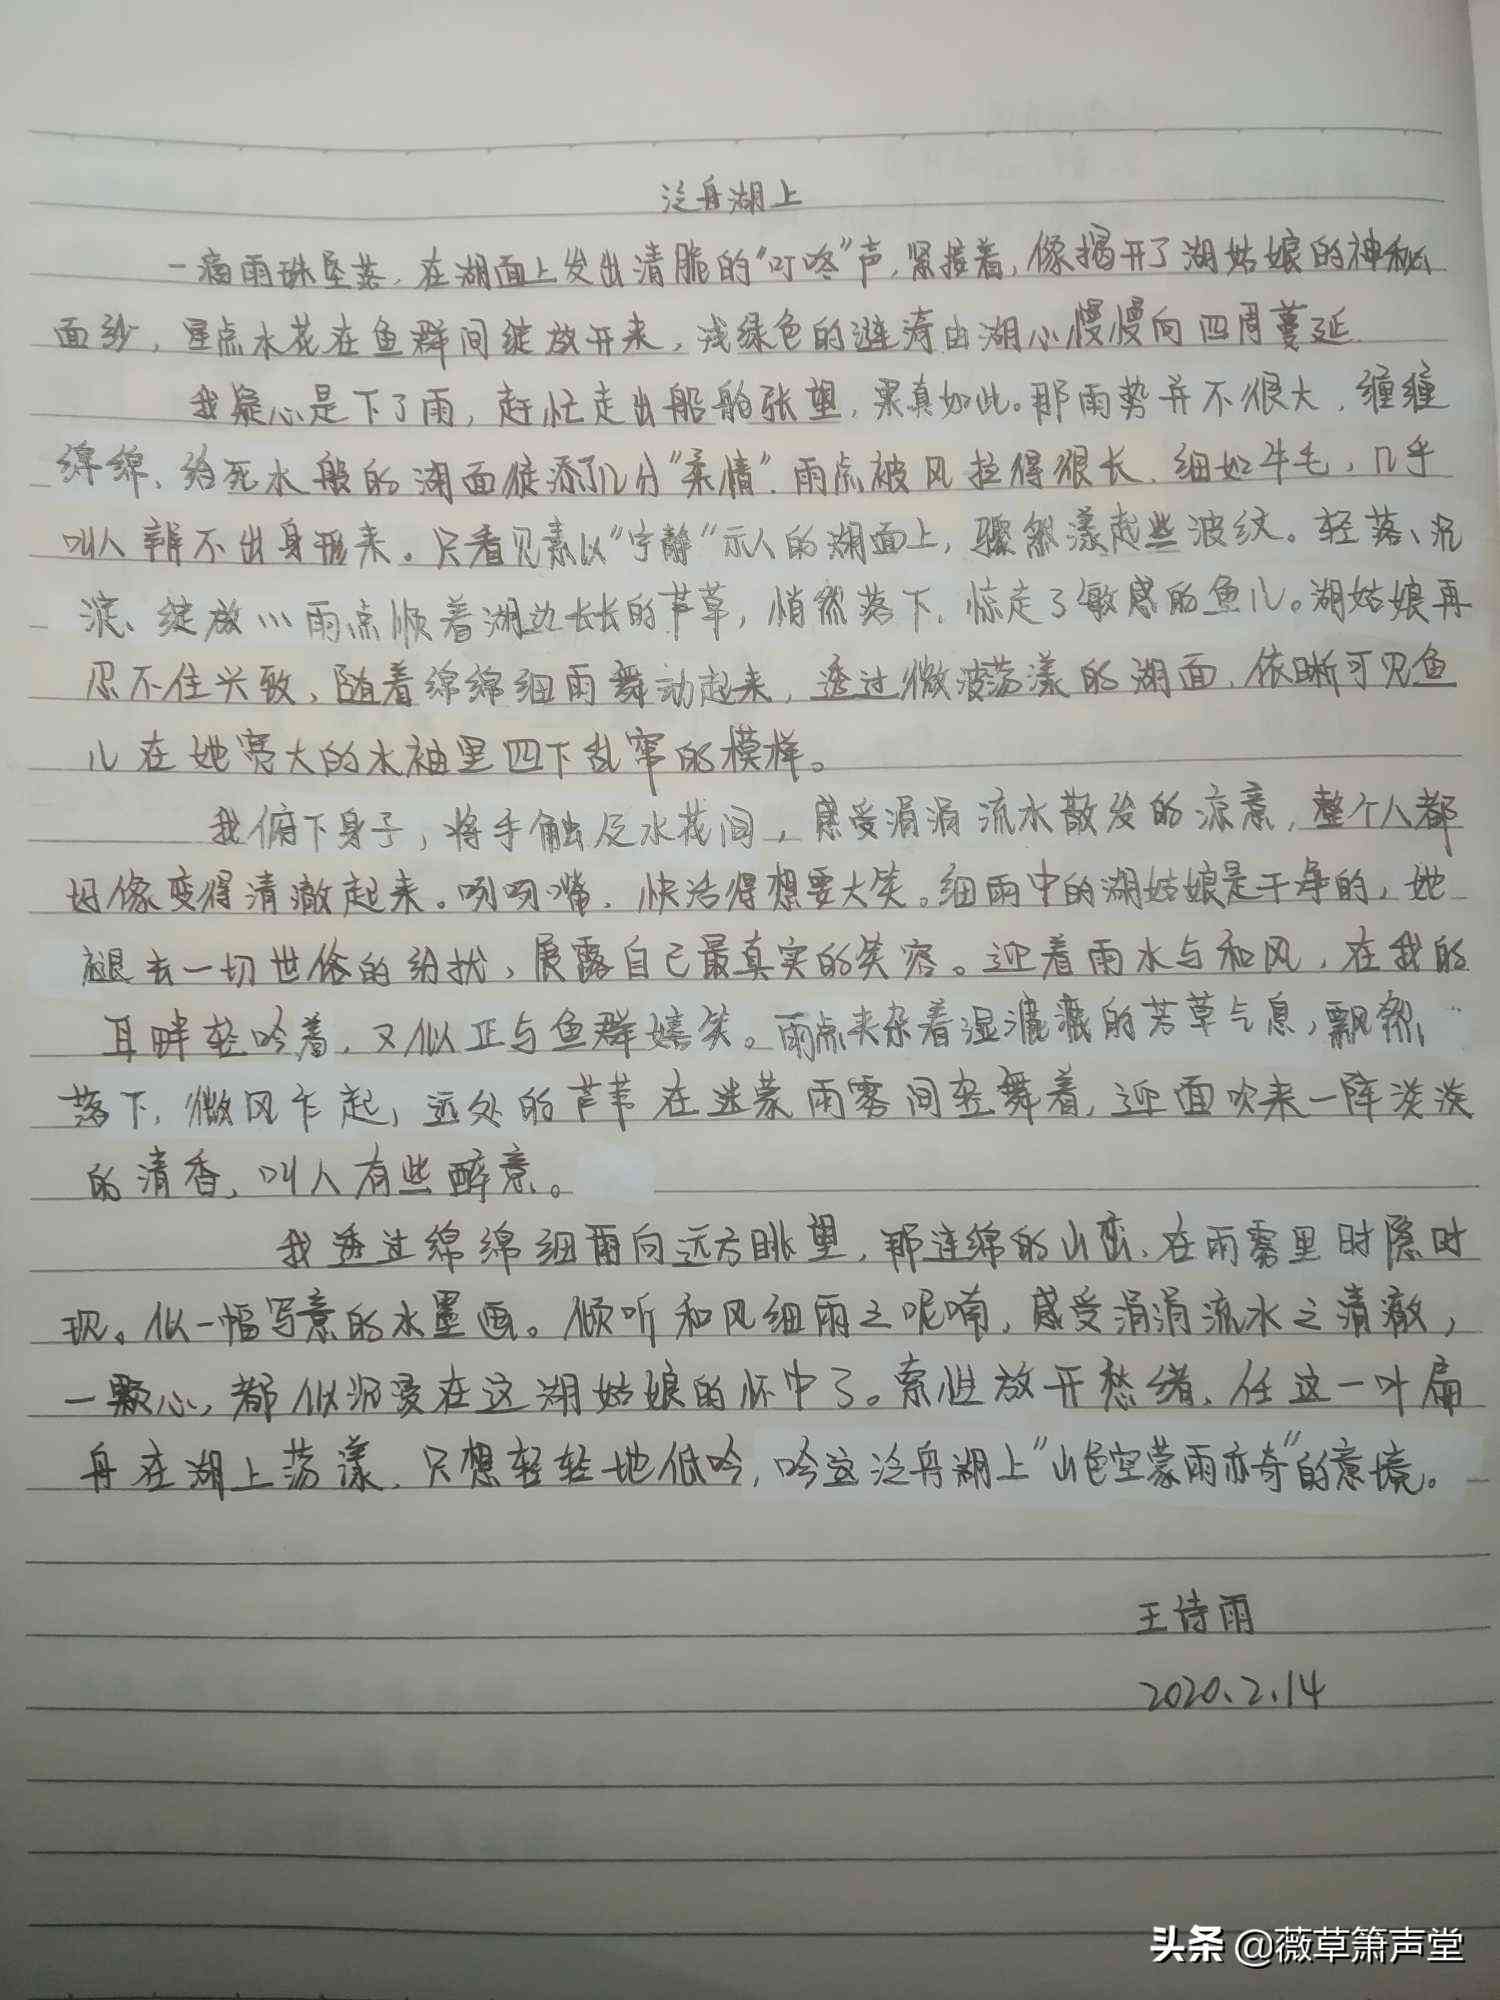 泛舟湖上
一滴雨珠坠落,在湖面上发出清脆的“叮咚”声,紧接着,像揭开了湖姑娘的神秘
面纱,星点水花在鱼群间绽放开来,浅绿色的涟漪由湖心慢慢向四周蔓延.
我疑心是下了雨,赶忙走出船舱张望,果真如此。那雨势并不很大,缠缠
绵绵、给死水般的湖面徒添了几分“柔情”.雨点被风拉得很长、细如牛毛,几乎
叫人辨不出身形来。只看见素以“宁静”示人的湖面上,骤然漾起些波纹。轻落、沉
淀、绽放……雨点顺着湖边长长的芦草,悄然落下,惊走了敏感的鱼儿。湖姑娘再
忍不住兴致,随着绵绵细雨舞动起来,透过微波荡漾的湖面,依晰可见鱼
儿在她宽大的水袖里四下乱窜的模样。
我俯下身子,将手触及水花间,感受涓涓流水散发的凉意,整个人都
好像变得清澈起来。咧咧嘴,快活得想要大笑。细雨中的湖姑娘是干净的,她
褪去一切世俗的纷扰,展露自己最真实的笑容。迎着雨水与和风,在我的
耳畔轻吟着,又似正与鱼群嬉笑。雨点夹杂着湿漉漉的芳草气息,飘然
落下,微风乍起,远处的芦苇在迷蒙雨雾间轻舞着,迎面吹来一阵淡淡
的清香,叫人有些醉意。
我透过绵绵细雨向远方眺望,那连绵的山峦,在雨雾里时隐时
现。似一幅写意的水墨画。倾听和风细雨之呢喃,感受涓涓流水之清澈,
一颗心,都似沉浸在这湖姑娘的怀中了。索性放开愁绪,任这一叶扁
舟在湖上荡漾,只想轻轻地低吟,吟这泛舟湖上“山色空蒙雨亦奇”的意境。
王诗雨
2020.2.14
头条 @薇草箫声堂